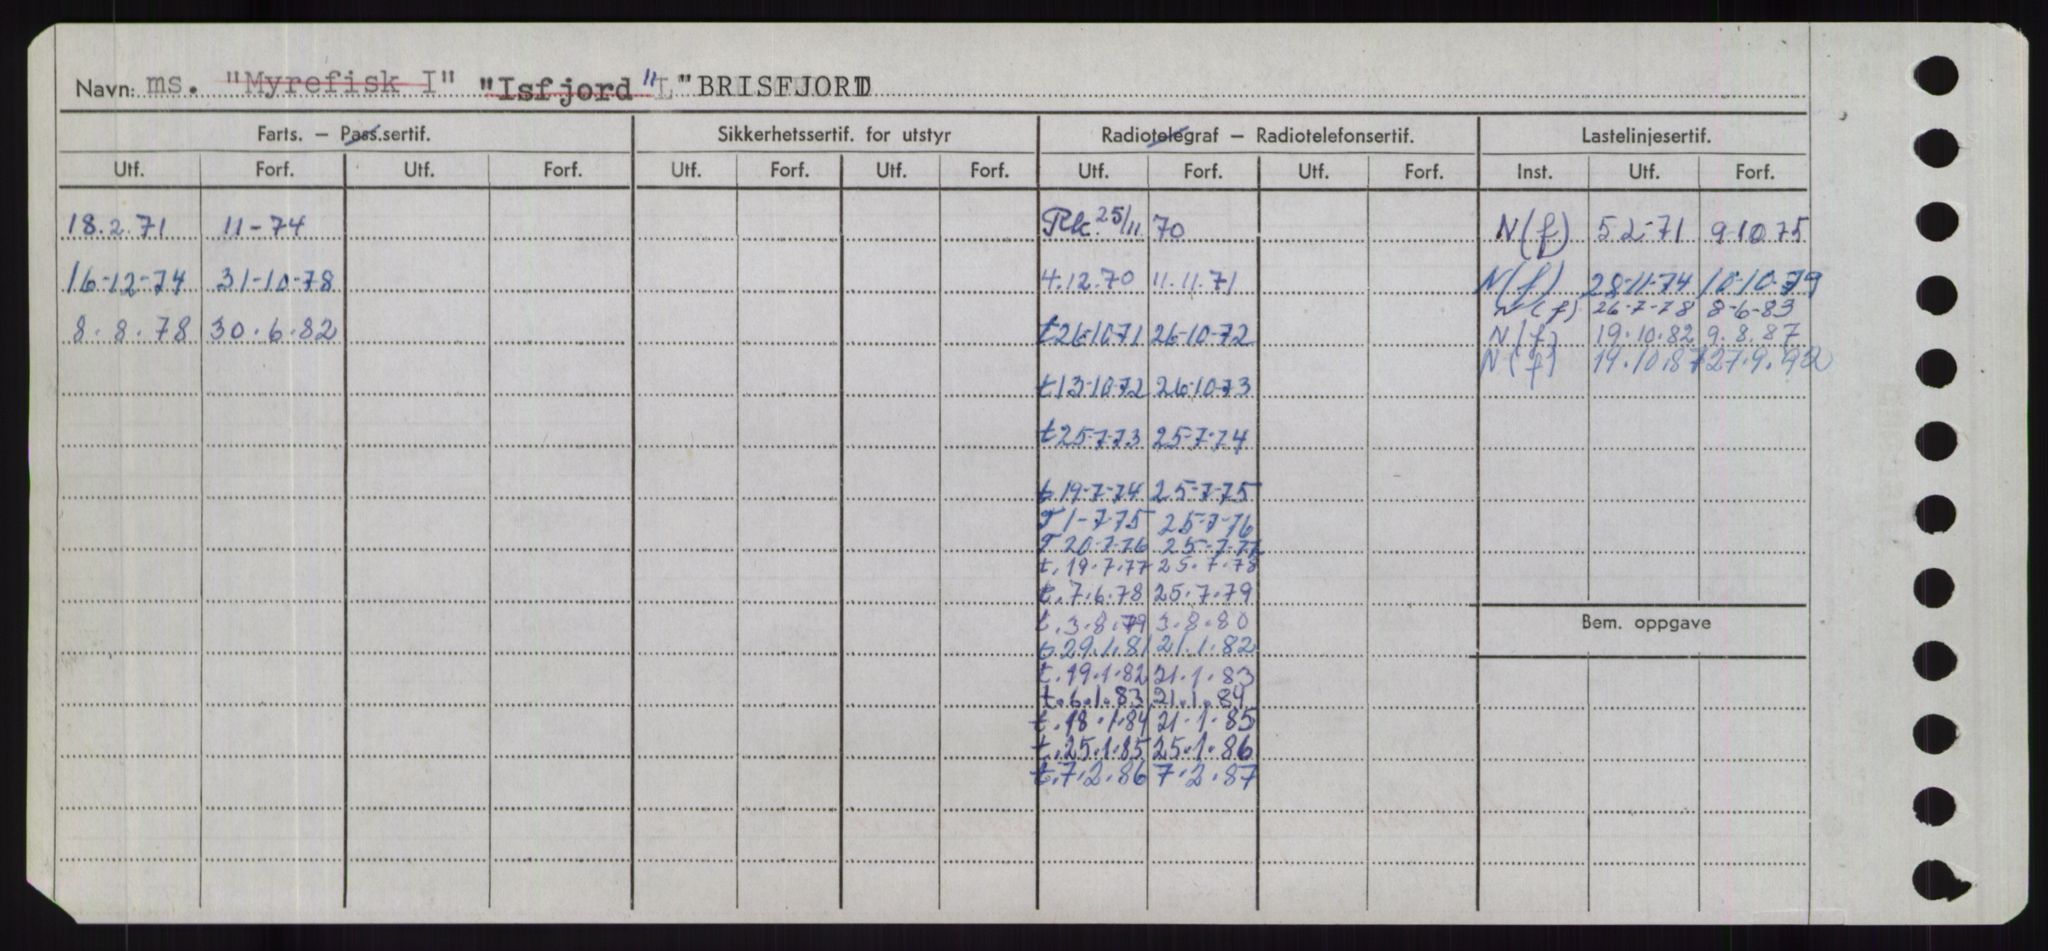 Navn: ms. "Myrefisk I" "Isfjord" "BRISFJORD
Farts. — Pass.sertif. Sikkerhetssertif. for utstyr Radiotelegraf — Radiotelefonsertif. Lastelinjesertif.
Utf. Forf. Utf. Forf. Utf. Forf. Utf. Forf. Utf. Forf. Utf. Forf. Inst. Utf. Forf.
18.2.71 11-74 Rk. 25/11 70 N(f) 5 2-71 9-10 75
16-12-74 31-10-78 4.12.70 11.11.71 N(f) 28-11-74 10-10-79
N(f) 26-7-78 8-6-83
8.8.78 30.6.82 t26-10-71 26-10-72 N(f) 19.10.82 9.8.87
N(f) 19.10.87 27.9.92
t13-10-72 26-10-73
t25-7-73 25-7-74
t.19-7-74 25-7-75
T 1-7-75 25-7-76
T 20-7-76 25-7-77
t.19.7.77 25.7.78
t.7.6.78 25.7.79
t.3.8.79 3.8.80
Bem. oppgave
t.29.1.81 21.1.82
t.19.1.82 21.1.83
t.6.1.83 21.1.84
t.18.1.84 21.1.85
t.25.1.85 25.1.86
t.7.2.86 7.2.87